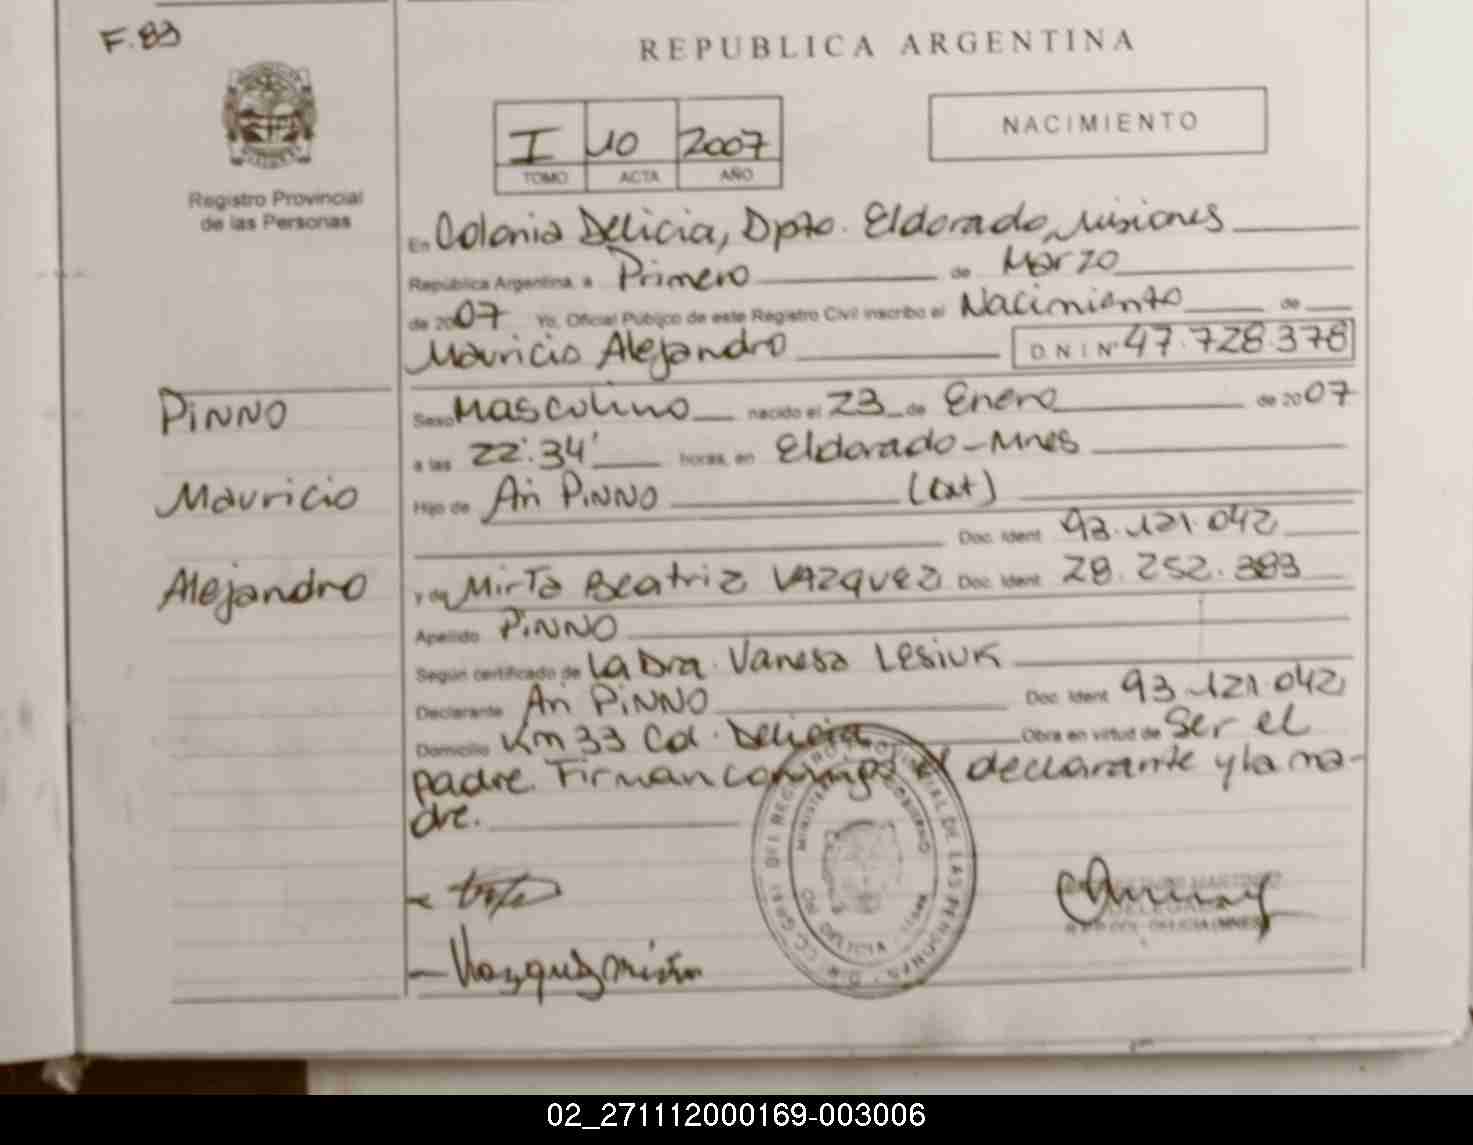 F.89
REPUBLICA ARGENTINA
I 10 2007
TOMO ACTA AÑO
NACIMIENTO
Registro Provincial
de las Personas
En Colonia Delicia, Dpto. Eldorado, Misiones
República Argentina, a Primero de Marzo
de 2007 Yo, Oficial Público de este Registro Civil inscribo el Nacimiento de
Mauricio Alejandro D N I Nº 47.728.378
PINNO
Mauricio
Alejandro
Sexo Masculino nacido el 23 de Enero de 2007
a las 22:34' horas, en Eldorado-Mnes
Hijo de Ari PINNO (ext)
Doc. Ident 93.121.042
y de Mirta Beatriz VAZQUEZ Doc. Ident 28.252.383
Apellido PINNO
Según certificado de la Dra. Vanesa Lesiuk
Declarante Ari PINNO Doc. Ident 93.121.042
Domicilio Km 33 Col. Delicia Obra en virtud de Ser el
padre. Firman conmigo el declarante y la ma-
dre.
Vazquez Mirta
DELICIA (MNES)
02_271112000169-003006